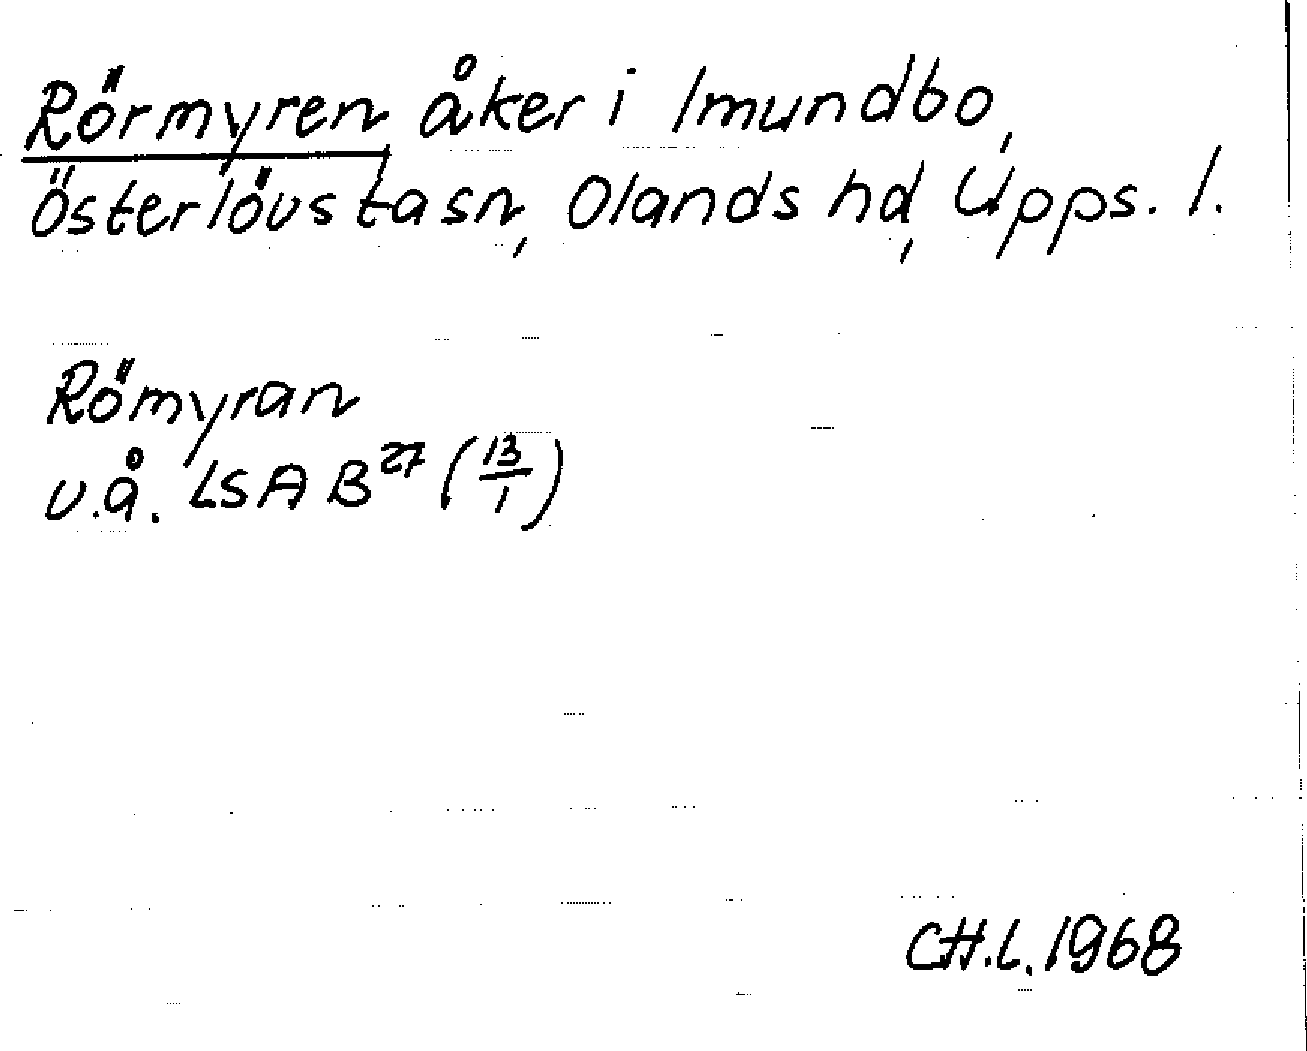 Rörmyren åker i Imundbo,
Österlövsta sn, Olands hd, Upps. l.
Römyran
u.å. LSA B27 (13/1)
CH.L. 1968